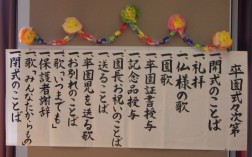 卒園式次第
一開式のことば
一礼拝
一仏様の歌
一園歌
一卒園証書授与
一記念品授与
一園長お祝いのことば
一送ることば
一卒園児を送る歌
一お別れのことば
一歌「いつまでも」
一保護者謝辞
一歌「みんなだからもの」
一閉式のことば